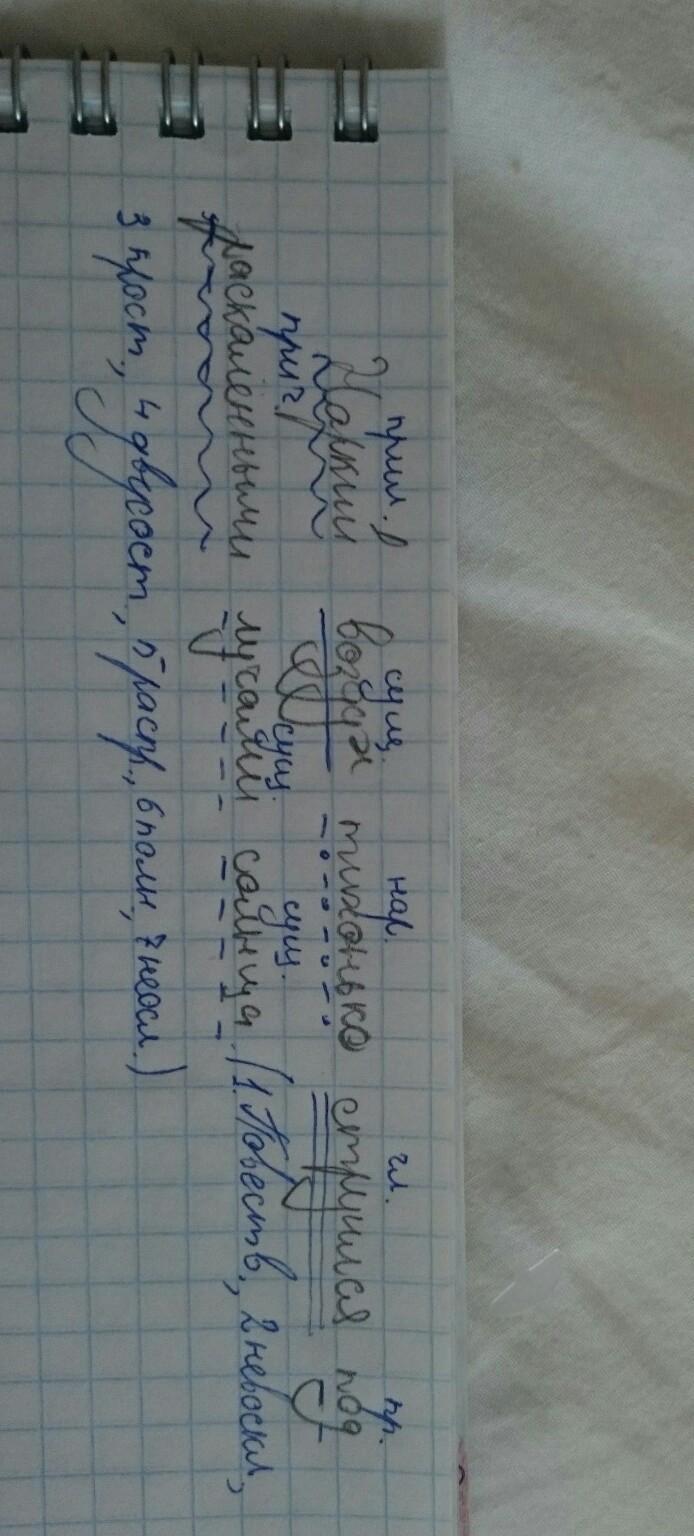 прил. сущ. нар. гл. пр.
Жаркий воздух тихонько струился под
прич. сущ. сущ.
раскалёнными лучами солнца. (1. Повеств., 2 невоскл,
3 прост., 4 двусост, 5 распр., 6 полн, 7 неосл.)